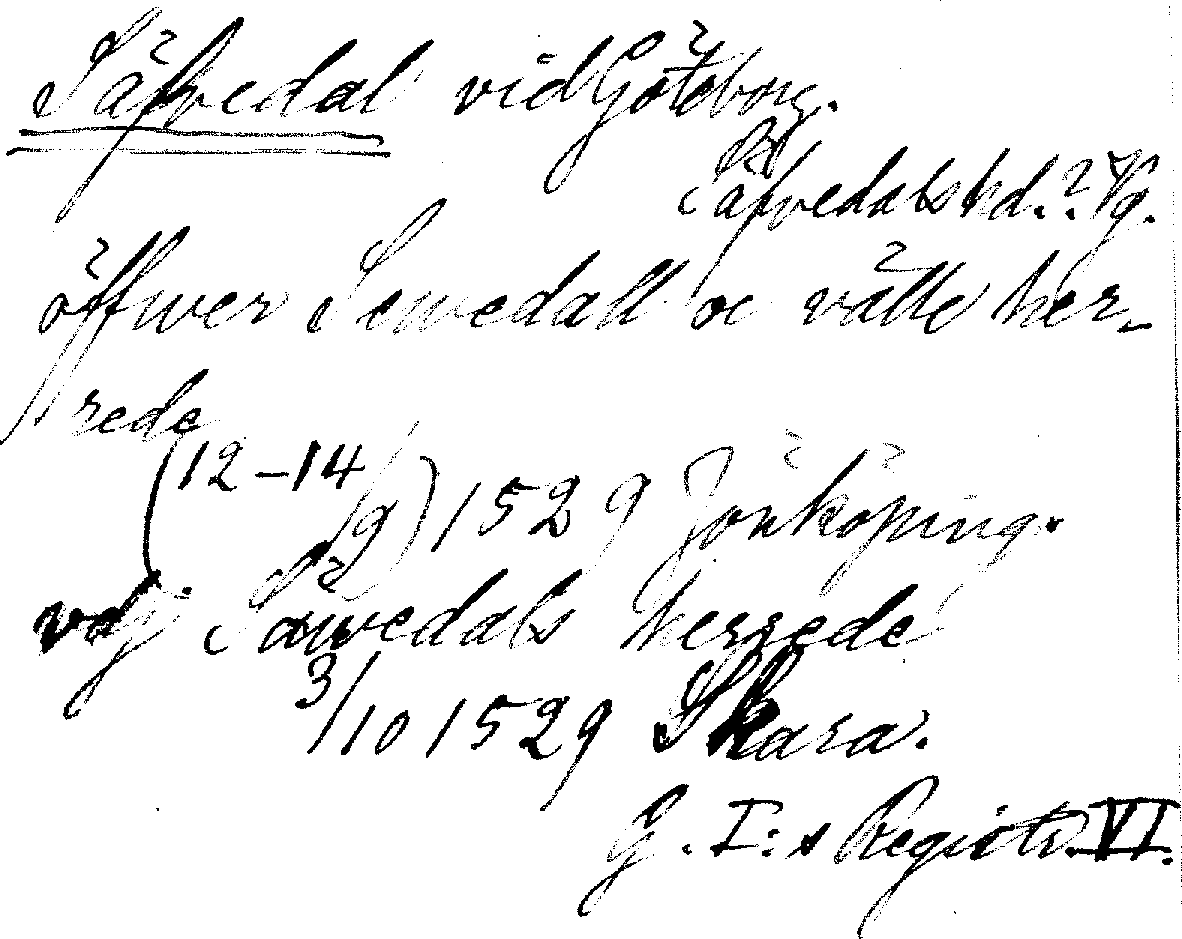 Säfvedal vid Göteborg.
Säfvedals hd.? Vg.
öffwer Sewedall oc vätle her-
rede
(12-14/9) 1529 Jönköping.
vdj Säwedals herrede
3/10 1529 Skara.
G. I:s Registr. VI.